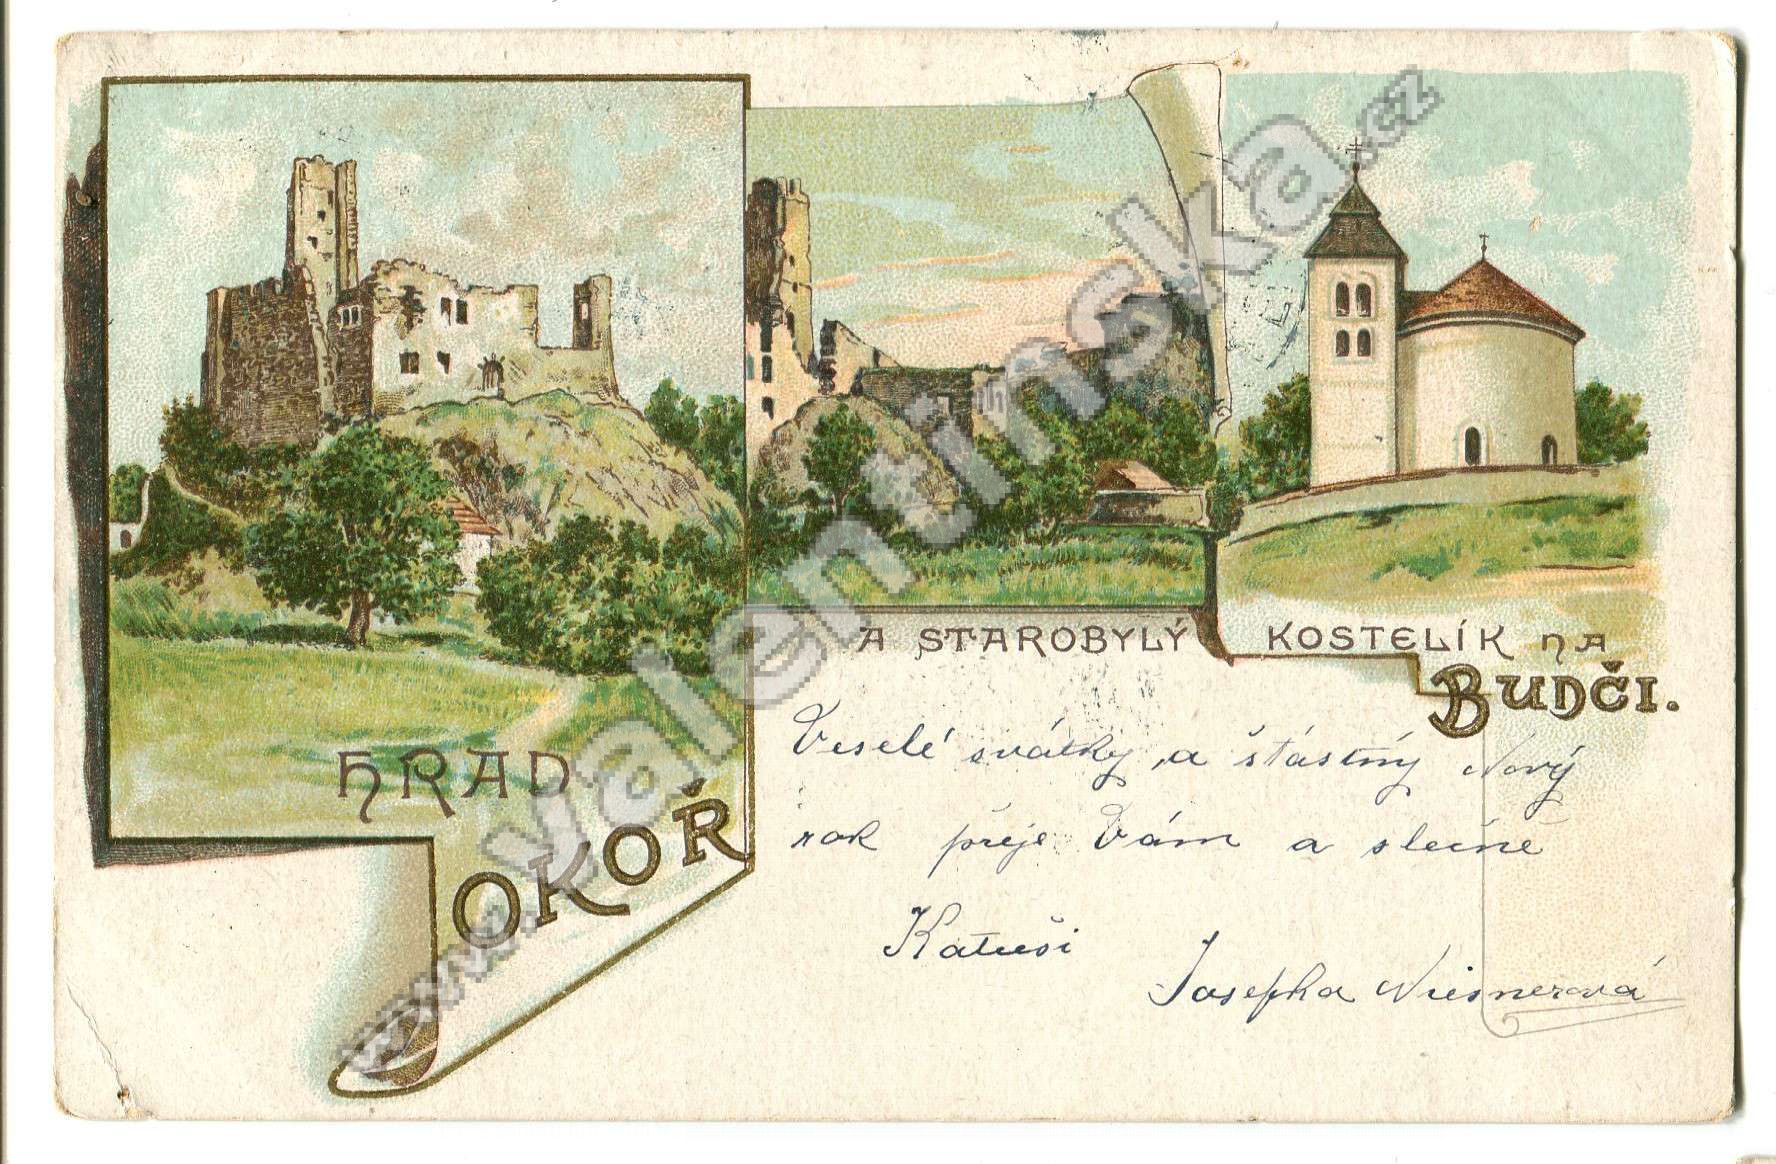 HRAD
OKOŘ
A STAROBYLÝ KOSTELÍK NA
BUDČI.
Veselé svátky, a štástný Nový
rok přeje Vám a slečně
Katuši
Josefka Niesnerová
www.valentinska.cz